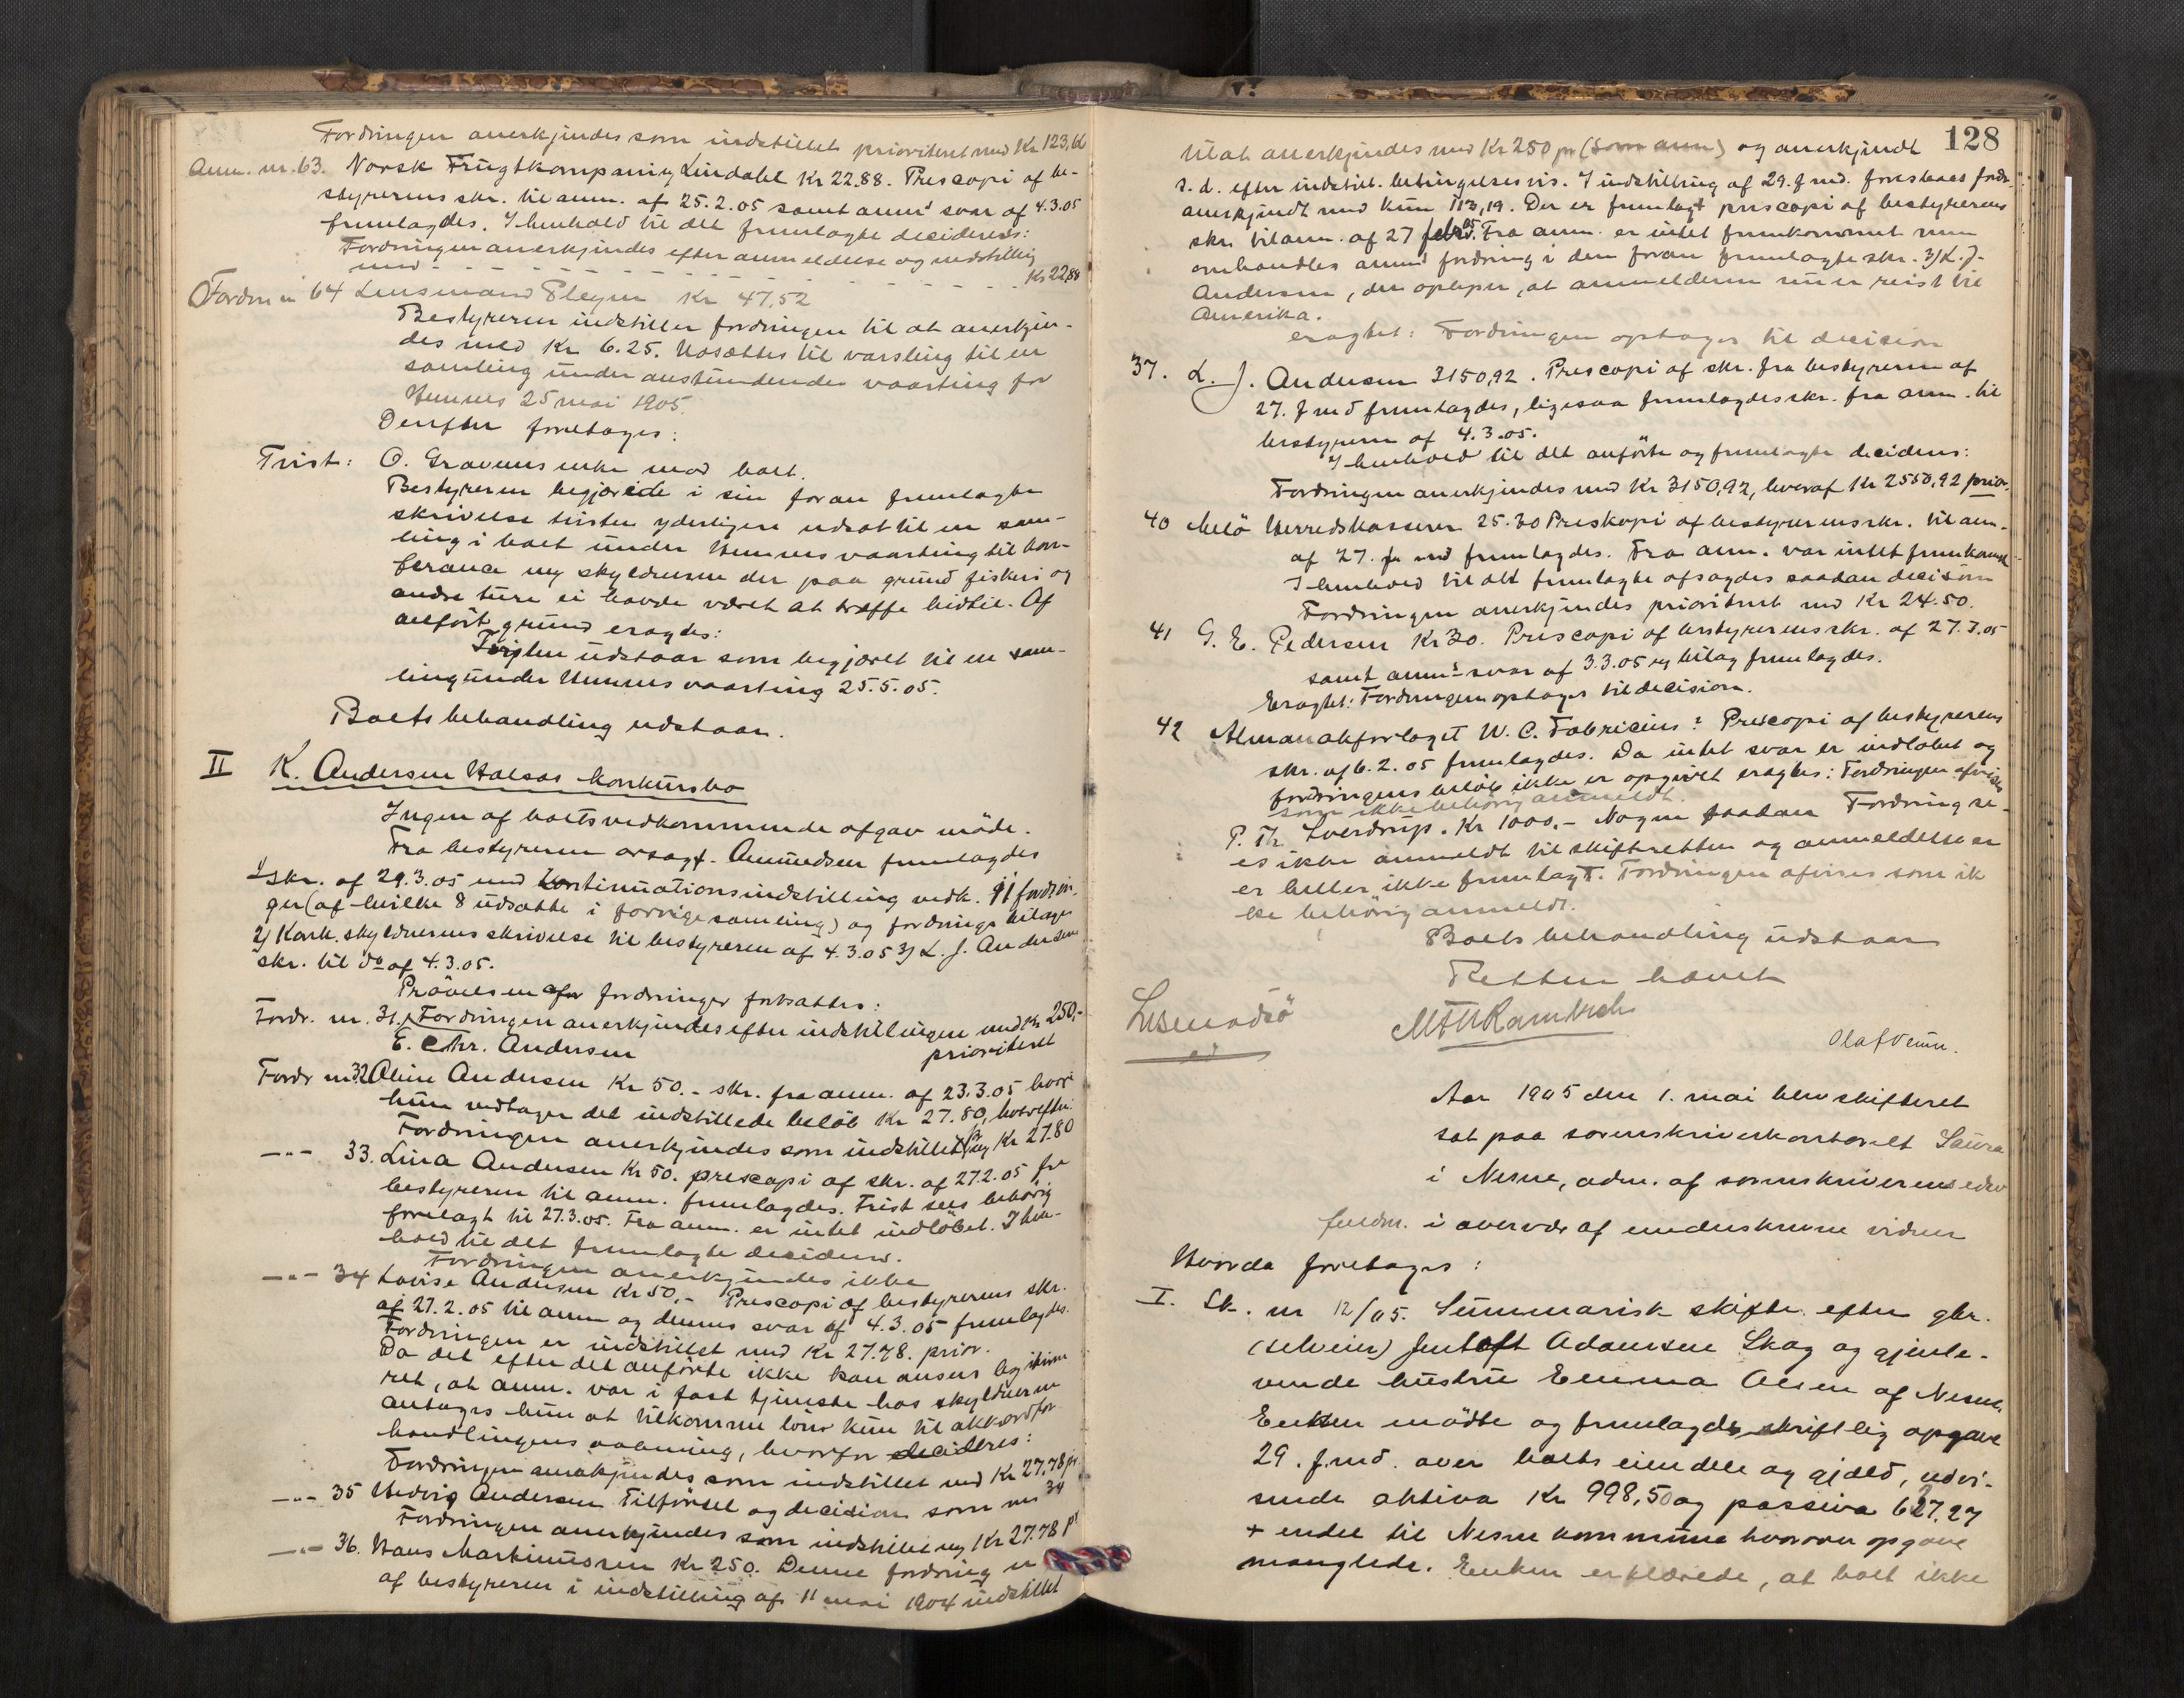 Fordringen anerkjendes som indstillet prioriteret med Kr 123,60
Anm. nr. 63. Norsk Frugtkompani Lindahl Kr 22.88. Prescopi af be-
styrerens skr. til anm. af 25.2.05 samt anms svar af 4.3.05
fremlagdes. I henhold til det fremlagte decideres:
Fordringen anerkjendes efter anmeldelse og indstilling
med - - - - - - - - - - Kr 22,88
Fordr. nr 64 Lensmand Pleym Kr 47,52
Bestyreren indstiller fordringen til at anerkjen-
des med Kr 6.25. Udsættes til varsling til en
samling under anstundende vaarting for
Hemnes 25 mai 1905.
Derefter foretages:
Tvist: O. Gravems enke mod boet.
Bestyreren begjærede i sin foran fremlagte
skrivelse tvisten yderligere udsat til en sam-
ling i boet under Hemnes vaarting til kon-
ferance m/ skyldneren der paa grund fiskeri og
andre ture ei havde været at træffe hidtil. Af
anført grund eragtes:
Tvisten udstaar som begjæret til en sam-
ling under Hemnes vaarting 25.5.05.
Boets behandling udstaar.
II K. Andersen Halsøs konkursbo
Ingen af boets vedkommende afgav møde.
Fra bestyreren orsagf. Amundsen fremlagdes
1/ skr. af 29.3.05 med kontinuationsindstilling vedk. 11 fordrin-
ger (af hvilke 8 udsatte i forrige samling) og fordrings bilage
2/ Konk. skyldnerens skrivelse til bestyreren af 4.3.05 3/ L. J. Andersens
skr. til do af 4.3.05.
Prøvelsen af fordringer fortsattes:
Fordr. nr. 31. Fordringen anerkjendes efter indstillingen med Kr 250,-
E. Chr. Andersen prioriteret
Fordr nr 32 Oline Andersen Kr 50.- skr. fra anm. af 23.3.05 hvori
hun vedtager det indstillede beløb Kr 27.80, hvorefter:
Fordringen anerkjendes som indstillet m/ Kr 27.80
-"- 33. Lina Andersen Kr 50. prescopi af skr. af 27.2.05 fra
bestyreren til anm. fremlagdes. Frist sees behørig
forelagt til 27.3.05. Fra anm. er intet indløbet. I hen-
hold til det fremlagte decideres.
Fordringen anerkjendes ikke
-"- 34 Lovise Andersen Kr 50.- Prescopi af bestyrerens skr.
af 27.2.05 til anm og dennes svar af 4.3.05 fremlagdes.
Fordringen er indstillet med Kr 27.78. prior.
Da det efter det anførte ikke kan ansees legitime-
ret, at anm. var i fast tjeneste hos skyldneren
antages hun at tilkomme løn kun til akkordfor-
handlingens aabning, hvorfor decideres:
Fordringen anerkjendes som indstillet med Kr 27.78 pr.
-"- 35 Hedvig Andersen Tilførsel og decision som nr 34
Fordringen anerkjendes som indstillet m/ Kr 27.78 pr
-"- 36. Hans Martinussen Kr 250. Denne fordring er
af bestyreren i indstilling af 11 mai 1904 indstillet
128
til at anerkjendes med Kr 250 pr (som anm) og anerkjendt
s. d. efter indstil. betingelsesvis. I indstilling af 29. f md. foreslaaes fordr.
anerkjendt med kun 113,19. Der er fremlagt prescopi af bestyrerens
skr. til anm. af 27 febr. 05. Fra anm. er intet fremkommet men
omhandles anms fordring i den foran fremlagte skr. 3/ L. J.
Andersen, der oplyser, at anmelderen nu er reist til
Amerika.
eragtet: Fordringen optages til decision
37. L. J. Andersen 3150,92. Prescopi af skr. fra bestyreren af
27. f md fremlagdes, ligesaa fremlagdes skr. fra anm. til
bestyreren af 4.3.05.
I henhold til det anførte og fremlagte decideres:
Fordringen anerkjendes med Kr 3150,92, hvoraf Kr 2550,92 prior.
40 Melø Herredskasserer 25.30 Preskopi af bestyrerens skr. til anm.
af 27. f md fremlagdes. Fra anm. var intet fremkommet
I henhold til det fremlagte afsagdes saadan decision
Fordringen anerkjendes prioriteret med Kr 24.50.
41 G. E. Pedersen Kr 30. Prescopi af bestyrerens skr. af 27.3.05
samt anms svar af 3.3.05 m/ bilag fremlagdes.
Eragtet: Fordringen optages til decision.
42 Almanakforlaget W. C. Fabricius: Prescopi af bestyrerens
skr. af 6.2.05 fremlagdes. Da intet svar er indløbet og
fordringens beløb ikke er opgivet eragtes: Fordringen afvises
som ikke behørig anmeldt.
P. Th. Sverdrup. Kr 1000.- Nogen saadan Fordring se-
es ikke anmeldt til skifteretten og anmeldelse er
er heller ikke fremlagt. Fordringen afvises som ik
ke behørig anmeldt.
Boets behandling udstaar
Retten hævet
MFH Rambech
Olaf Venn.
Aar 1905 den 1. mai blev skifteret
sat paa sorenskriverkontoret Saura
i Nesne, adm. af sorenskriverens edsv
fuldm. i overvær af underskrevne vidner
Hvorda foretoges:
I. Sk. nr 12/05. Summarisk skifte efter gbr.
(selveier) Jentoft Adamsen Skog og gjenle-
vende hustru Emma Olsen af Nesne.
Enken mødte og fremlagde skriftlig opgave
29. f. md. over boets eiendele og gjæld, udvi-
sende aktiva Kr 998,50 og passiva 627.27
+ endel til Nesne kommune hvorover opgave
manglede. Enken erklærede, at boet ikke